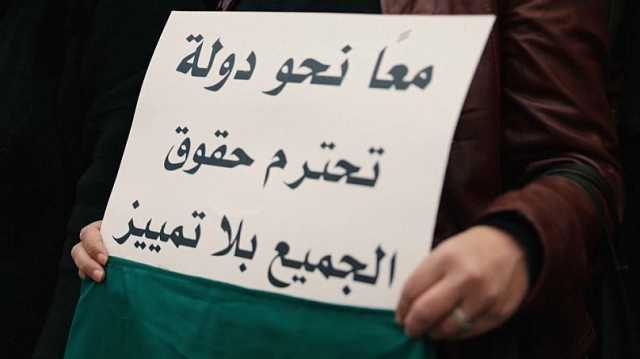 معًا نحو دولة
تحترم حقوق
الجميع بلا تمييز